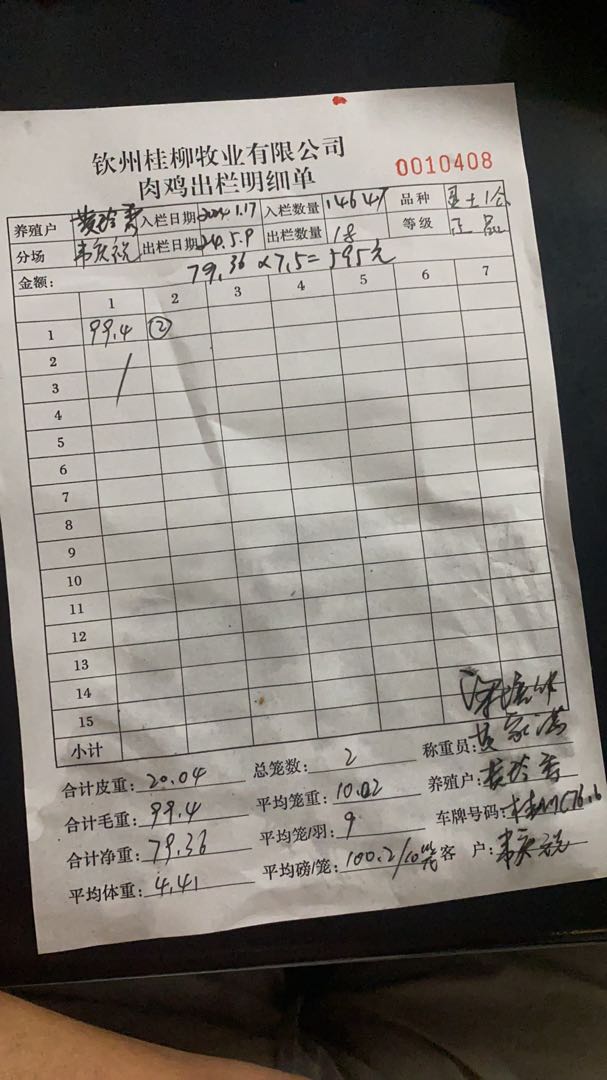 钦州桂柳牧业有限公司
肉鸡出栏明细单
0010408
养殖户 黄玲秀 入栏日期 2024.1.17 入栏数量 14647 品种
分场 韦庆锐 出栏日期 24.5.9 出栏数量 18 等级 正品
金额: 79.36×7.5=595元
1 2 3 4 5 6 7
1 99.4 ②
2
3
4
5
6
7
8
9
10
11
12
13
14
15
小计
合计皮重: 20.04 总笼数: 2 称重员:
合计毛重: 99.4 平均笼重: 10.02 养殖户: 黄玲秀
合计净重: 79.36 平均笼/羽: 9 车牌号码:
平均体重: 4.41 平均磅/笼: 100.2/10笼 客 户: 韦庆锐